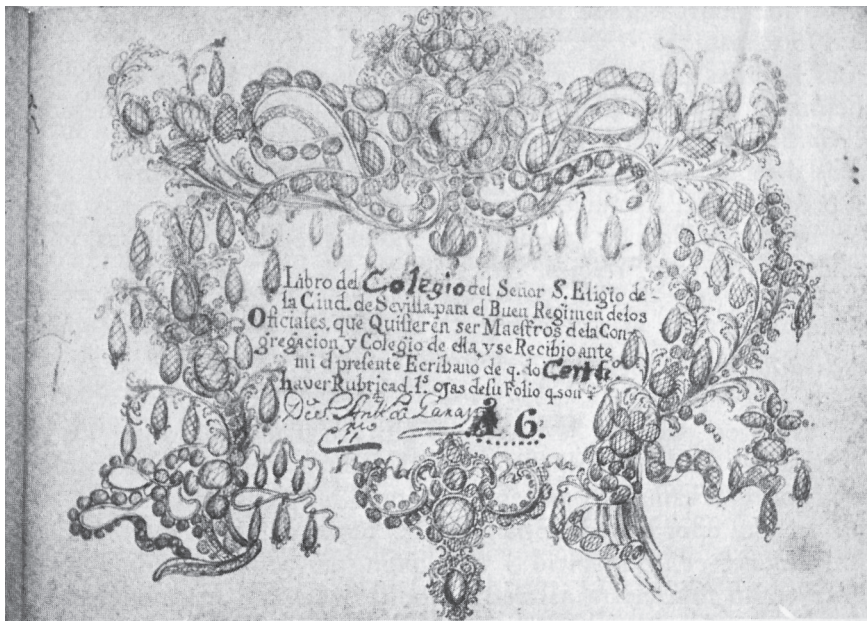 Libro del Colegio del Señor S. Eligio de
la Ciud. de Sevilla para el Buen Regimen de los
Oficiales, que Quisieren ser Maestros de la Con-
gregacion y Colegio de ella, y se Recibio ante
mi el presente Escribano de q. do Certifco
haver Rubricad. ls. ojas de su Folio q. son
6.